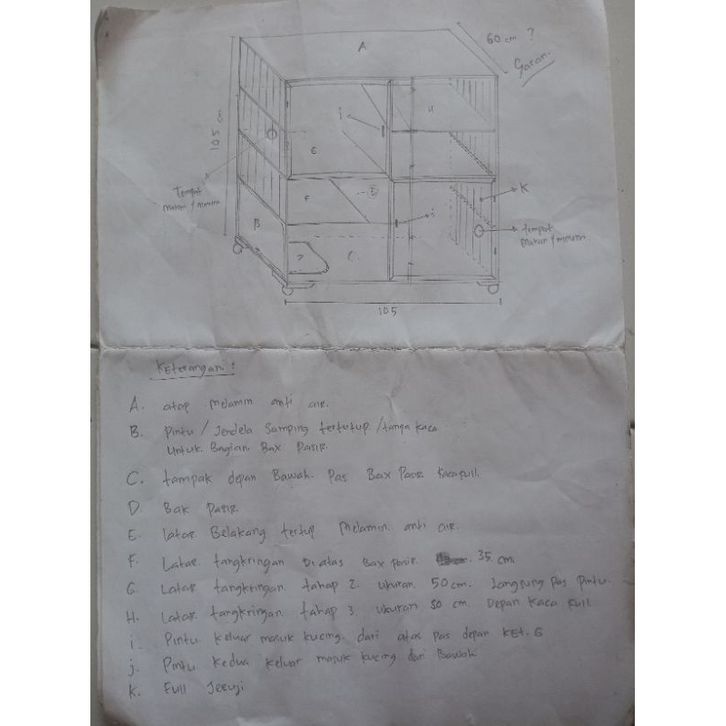 A
60 cm ?
Saran.
105 cm
i
H
G
F
D
K
Tempat
makan / minum
B
i
tempat
makan / minum
?
C.
105
Keterangan :
A. atap melamin anti air.
B. Pintu / Jendela Samping tertutup / tanpa kaca
Untuk Bagian Bax Pasir.
C. tampak depan Bawah. Pas Bax Pasir kaca full.
D Bak Pasir
E. latar Belakang tertup melamin anti air.
F. Latar tangkringan Di atas Bax pasir 35 cm
G. Latar tangkringan tahap 2. ukuran 50 cm. langsung pas pintu.
H. Latar tangkringan tahap 3 ukuran 50 cm Depan kaca full
i. Pintu keluar masuk kucing dari atas pas depan KET. G
j. Pintu kedua keluar masuk kucing dari Bawah
K. Full Jeruji